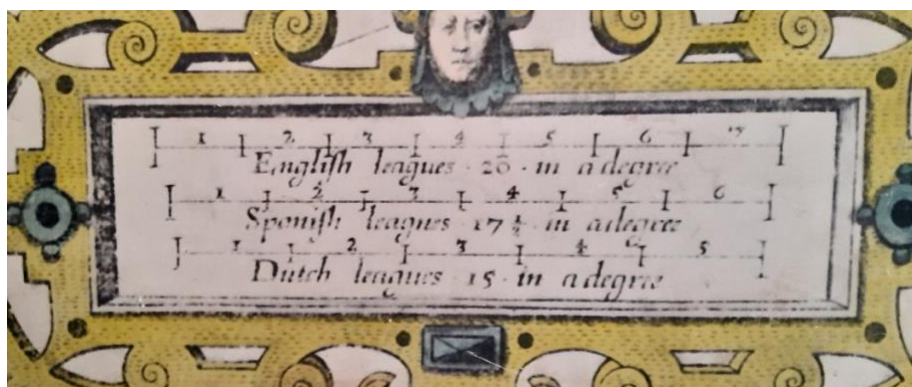 1 2 3 4 5 6 7
Engliſh leagues · 20 · in a degree
1 2 3 4 5 6
Spaniſh leagues · 17½ · in a degree
1 2 3 4 5
Dutch leagues · 15 · in a degree